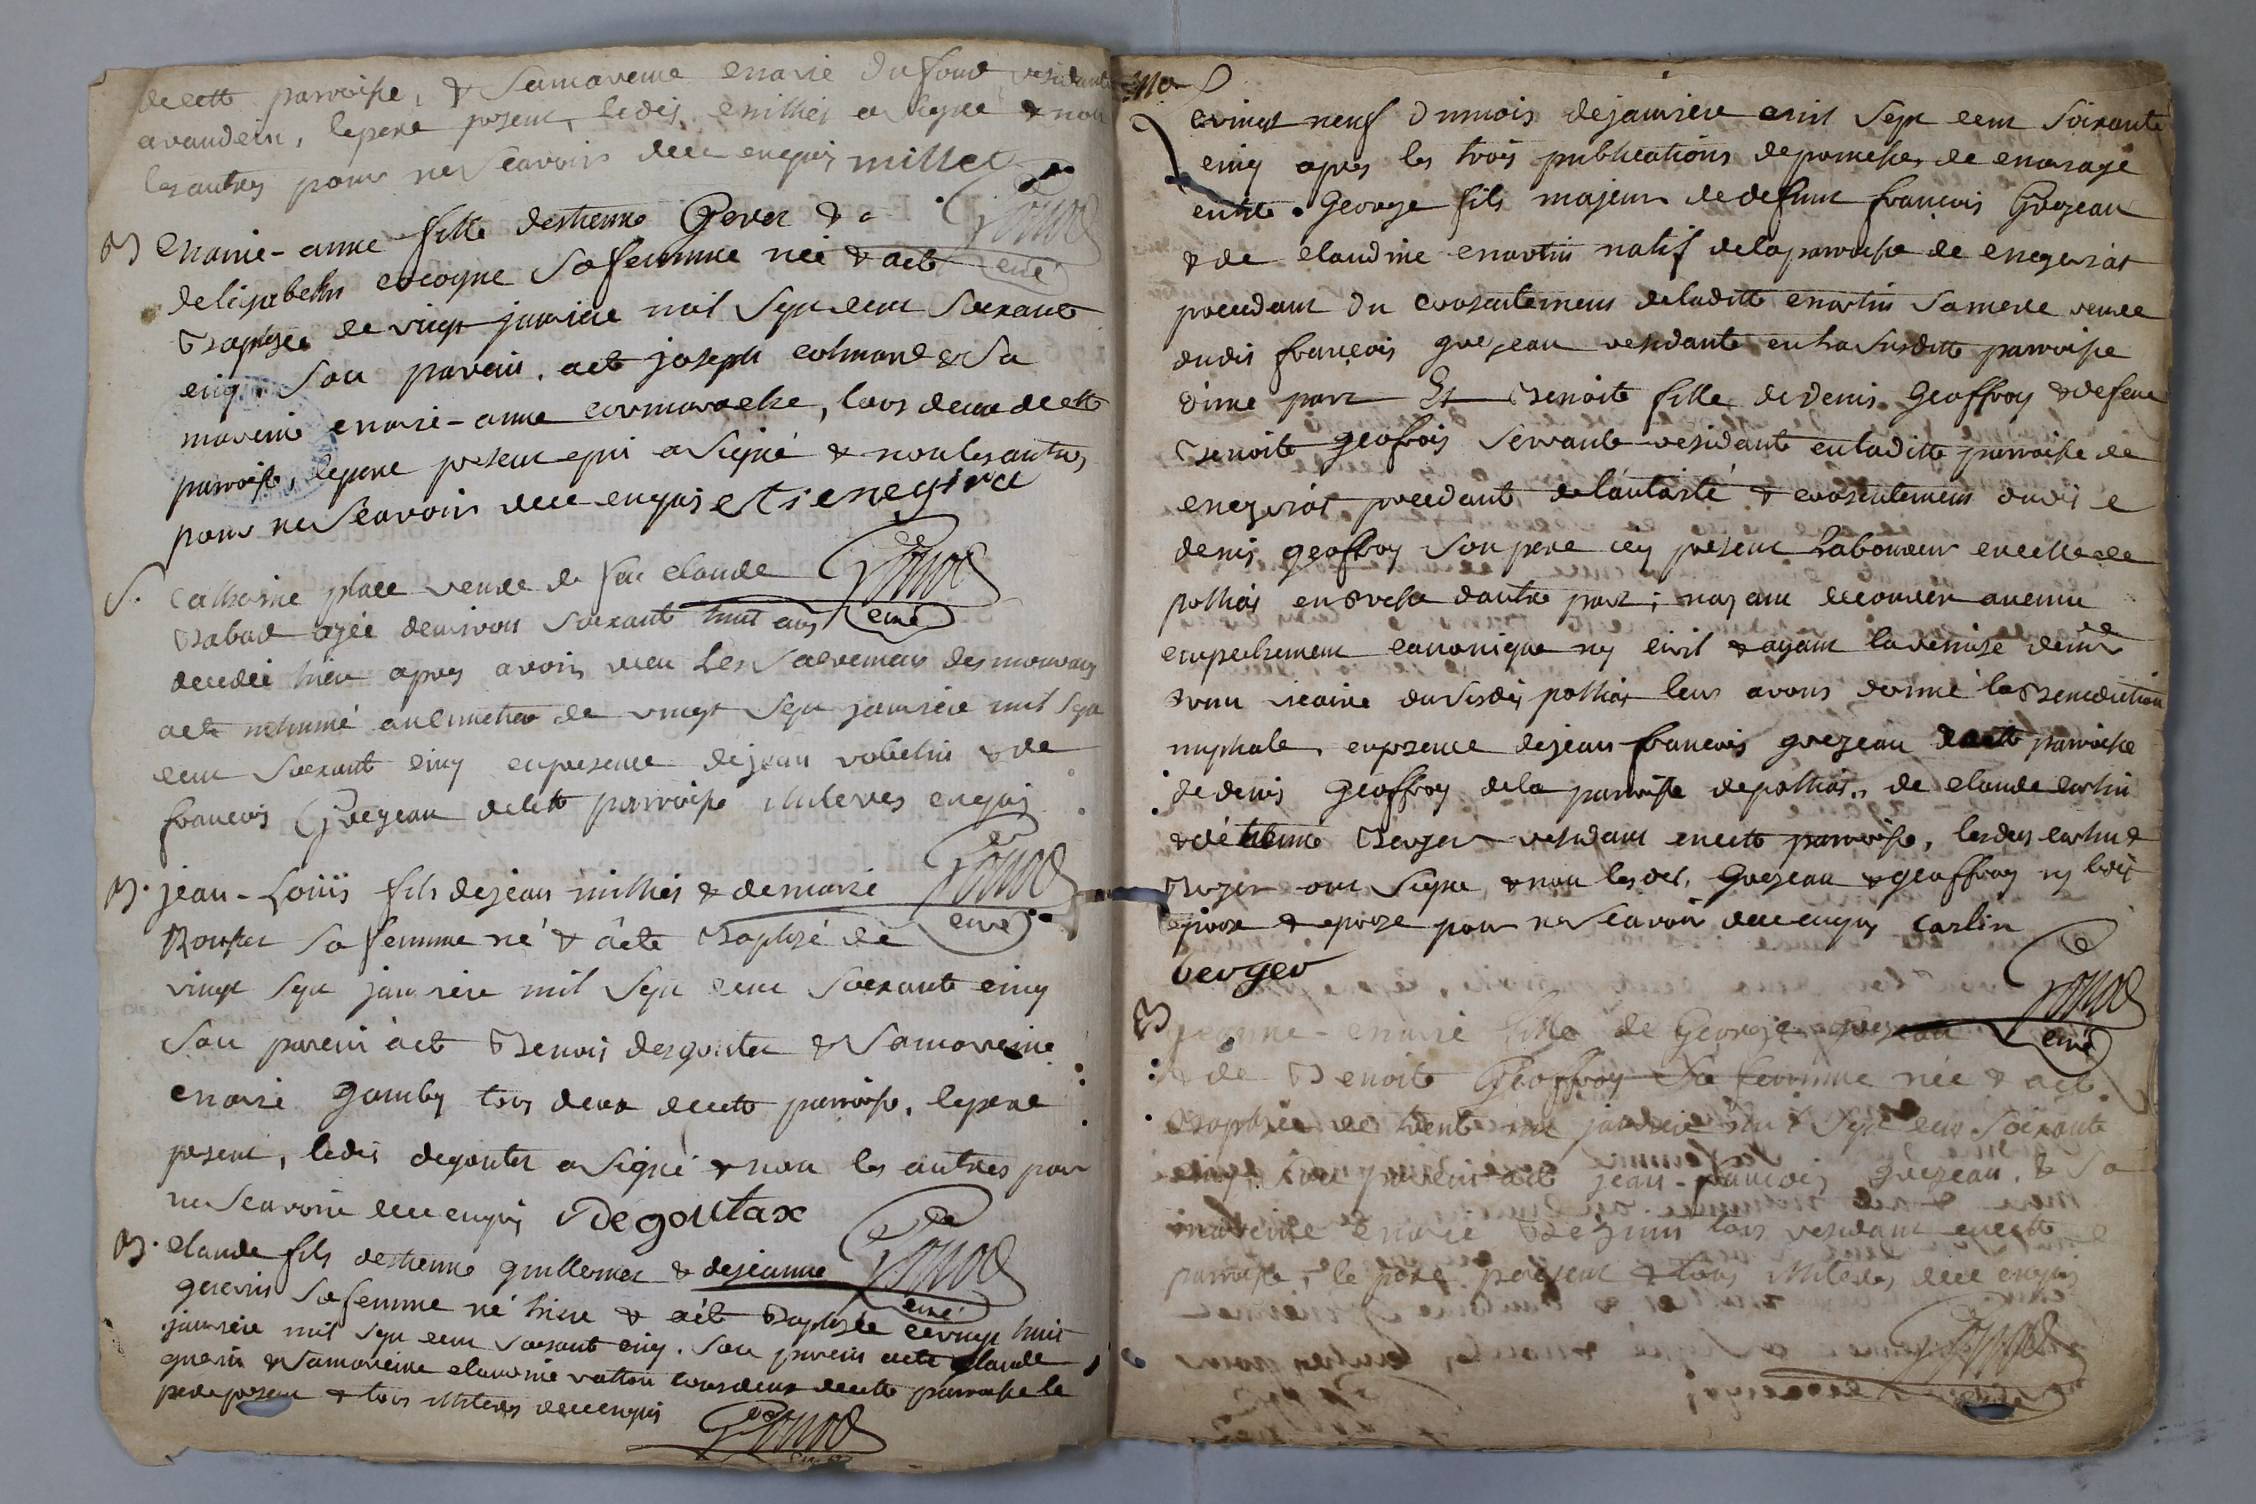 de cette parroisse, & sa mareine marie Dufour residante
a vandein, le pere present, ledit millier a signé & non
les autres pour ne scavoir de ce enquis millet
B marie-anne fille destienne Gever & Gonod
delizabeth cocogne sa femme née & a eté curé
Baptizée ce vingt janvier mil sept cent soixante
cinq. son parein a eté joseph colmard & sa
mareine marie-anne cormoreche, tous deux de cette
parroisse, le pere present qui a signé & non les autres
pour ne scavoir de ce enquis
S. Catherine place veuve de feu claude Gonod
Rabad agée denviron soixante huit ans curé
decedée hier apres avoir receu les sacremens des mourans
a eté inhumé au cimetiere ce vingt sept janvier mil sept
cent soixante cinq en presence de jean robelin & de
francois Grezeau de cette parroisse illiteres enquis
Gonod
B. jean-Loüis fils de jean millier & de marie
Rousset sa femme né & a eté Baptizé ce curé
vingt sept janvier mil sept cent soixante cinq
son parein a eté Benoit desgoutes & sa mareine
marie gamby tous deux de cette parroisse, le pere
present, ledit degoutes a signé & non les autres pour
ne scavoir de ce enquis Degoutax
B. claude fils destienne guillermet & de jeanne Gonod
guerin sa femme né hier & a eté Baptizé ce vingt huit curé
janvier mil sept cent soixante cinq. son parein a eté claude
guerin & sa mareine claudine tous deux de cette parroisse le
pere present & tous illiteres de ce enquis
Gonod
curé
ce vingt neuf du mois de janvier mil sept cent soixante
cinq apres les trois publications de promesses de mariage
entre George fils majeur de defunt francois Grezeau
& de claudine martin natif de la parroisse de mezeriat
procedant du consentement de ladite martin sa mere veuve
dudit francois grezeau residante en la susditte parroisse
d'une part Et Benoite fille de Denis Geoffroy & de feue
Benoite geofrois servante residante en laditte parroisse de
mezeriat procedant de l'autorité & consentement dudit
denis geoffroy son pere icy present Laboureur en celle de
polliat en Bresse dautre part; nayant decouvert aucun
empechement canonique ny civil & ayant la remise de mr
vicaire du susdit polliat leur avons donné la Benediction
nuptiale, en presence de jean francois grezeau de cette parroisse
de denis Geoffroy de la parroisse de polliat, de claude carlin
& de etienne Berger residant en cette parroisse, lesdits carlin &
Berger ont signé & non lesdits Grezeau & geoffroy ny lesdits
epoux & epouze pour ne scavoir de ce enquis carlin
berger Gonod
B jeanne-marie fille de George grezeau curé
& de Benoite Geoffroy sa femme née & a eté
Baptizée ce trente un janvier mil sept cent soixante
cinq. son parein a eté jean-francois grezeau, & sa
mareine marie tous residant en cette
parroisse, le pere present & tous illiteres de ce enquis
Gonod